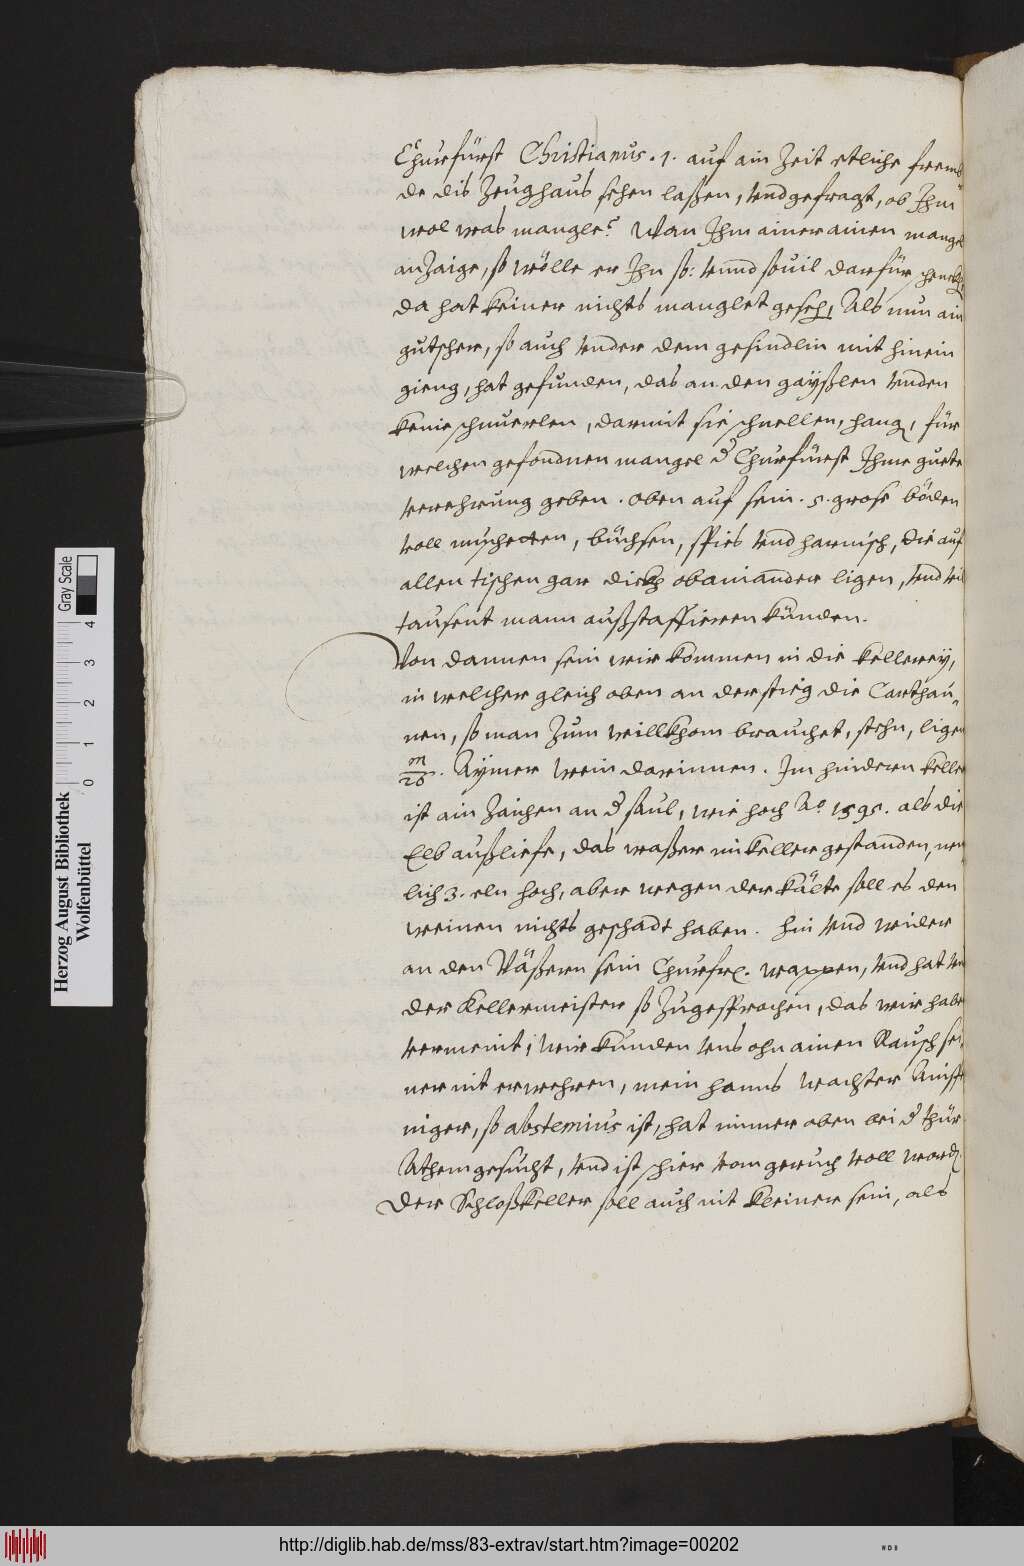 Churfürst Christianus .1. auf ain Zeit etliche frem„
de dis Zeughaus sehen laßen, vnd gefragt, ob Ihm
wol was mangle? Wan Ihm ainer ainen mangel
anZaige, so wölle er Ihn so: vnnd souil darfür
da hat keiner nichts manglet geseh, Als nun ain
gutscher, so auch vnder dem gesindlin mit hinein
gieng, hat gefunden, das an den gayßlen vnden
keine schnuerlen, darmit sie schnellen, hang, für
welchen gefondnen mangel d Churfürst Ihme guete
verehrung geben. oben auf sein .5. grose böden
voll muscheten, büchsen, spies vnd harnisch, die auf
allen tischen gar dickh obainander ligen, vnd vil
tausent mann außstaffieren künden.
Von dannen sein wir kommen in die kellerey,
in welcher gleich oben an der stieg die Carthau„
nen, so man Zum willkhom brauchet, stehn, ligen
m/20. Aymer wein darinnen. Im hindern keller
ist ain Zaichen an d saul, wie hoch Ao 1595. als die
Elb außliefe, das waßer im keller gestanden, nem
lich 3. eln hoch, aber wegen der kälte soll es den
weinen nichts geschadt haben. hin vnd wider
an den Väßern sein Churfr. wappen, vnd hat vn
der kellermeister so Zugesprochen, das wir habe
vermeint, wir kunden vns ohn ainen Rausch sei„
ner nit erwehren, mein hanns Wachter
niger, so abstemius ist, hat immer oben bei d thür
Athem gesucht, vnd ist schier vom geruch voll word.
Der Schloßkeller soll auch nit kleiner sein, als
Gray Scale
0 1 2 3 4
Herzog August Bibliothek
Wolfenbüttel
http://diglib.hab.de/mss/83-extrav/start.htm?image=00202